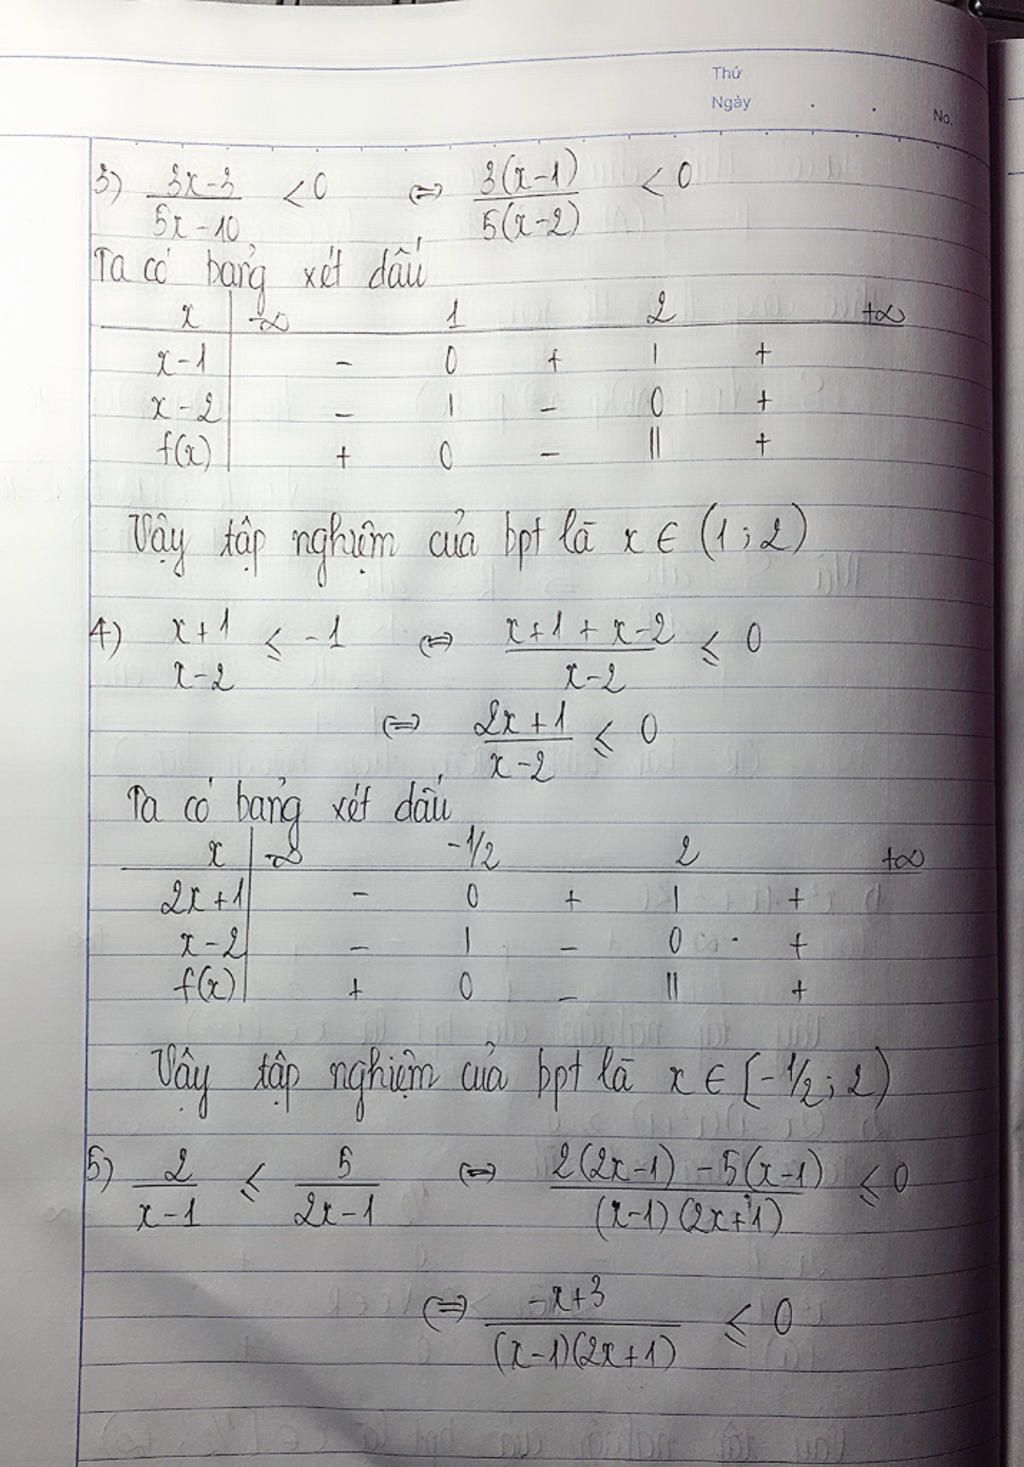 Thứ
Ngày . . No.
3) (3x-3)/(5x-10) < 0 ⇔ 3(x-1)/5(x-2) < 0
Ta có bảng xét dấu
x | -∞ 1 2 +∞
x-1 | - 0 + | +
x-2 | - | - 0 +
f(x) | + 0 - || +
Vậy tập nghiệm của bpt là x ∈ (1; 2)
4) x+1 / x-2 ≤ -1 ⇔ (x+1+x-2)/(x-2) ≤ 0
⇔ (2x+1)/(x-2) ≤ 0
Ta có bảng xét dấu
x | -∞ -1/2 2 +∞
2x+1 | - 0 + | +
x-2 | - | - 0 +
f(x) | + 0 - || +
Vậy tập nghiệm của bpt là x ∈ [-1/2; 2)
5) 2/(x-1) ≤ 5/(2x-1) ⇔ (2(2x-1) - 5(x-1))/((x-1)(2x+1)) ≤ 0
⇔ (-x+3)/((x-1)(2x+1)) ≤ 0